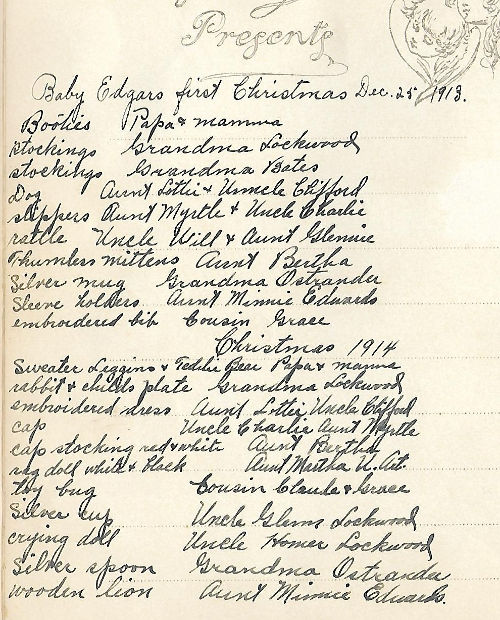 Presents
Baby Edgars first Christmas Dec. 25 1913.
Booties Papa & mamma
stockings Grandma Lockwood
stockings Grandma Bates
Dog Aunt Lottie & Unncle Clifford
slippers Aunt Myrtle & Uncle Charlie
rattle Uncle Will & Aunt Glennie
Thumbless mittens Aunt Bertha
Silver mug Grandma Ostrander
Sleeve holders Aunt Minnie Edwards
embroidered bib Cousin Grace
Christmas 1914
Sweater Leggins & Teddie Bear Papa & mamma
rabbit & childs plate Grandma Lockwood
embroidered dress Aunt Lottie Uncle Clifford
cap Uncle Charlie Aunt Myrtle
cap stocking red & white Aunt Bertha
rag doll white & black Aunt Martha
toy bug Cousin Claude & Grace
Silver cup Uncle Glenns Lockwood
crying doll Uncle Homer Lockwood
Silver spoon Grandma Ostrander
wooden lion Aunt Minnie Edwards.